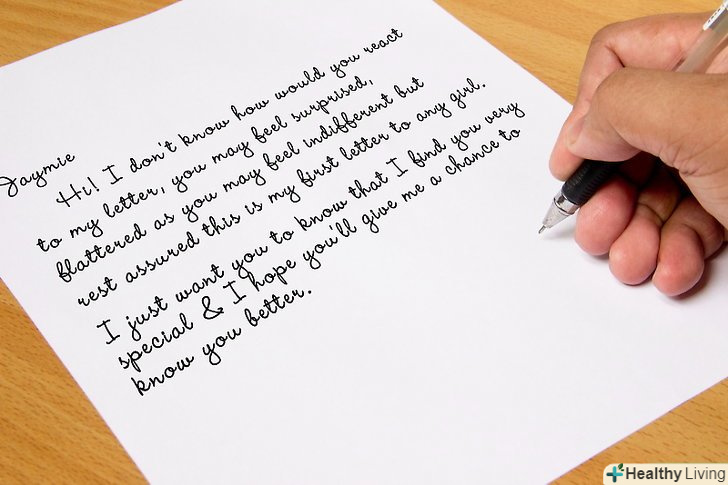 Jaymie
Hi! I don't know how would you react
to my letter, you may feel surprised,
flattered as you may feel indifferent but
rest assured this is my first letter to any girl.
I just want you to know that I find you very
special & I hope you'll give me a chance to
know you better.
Healthy Living